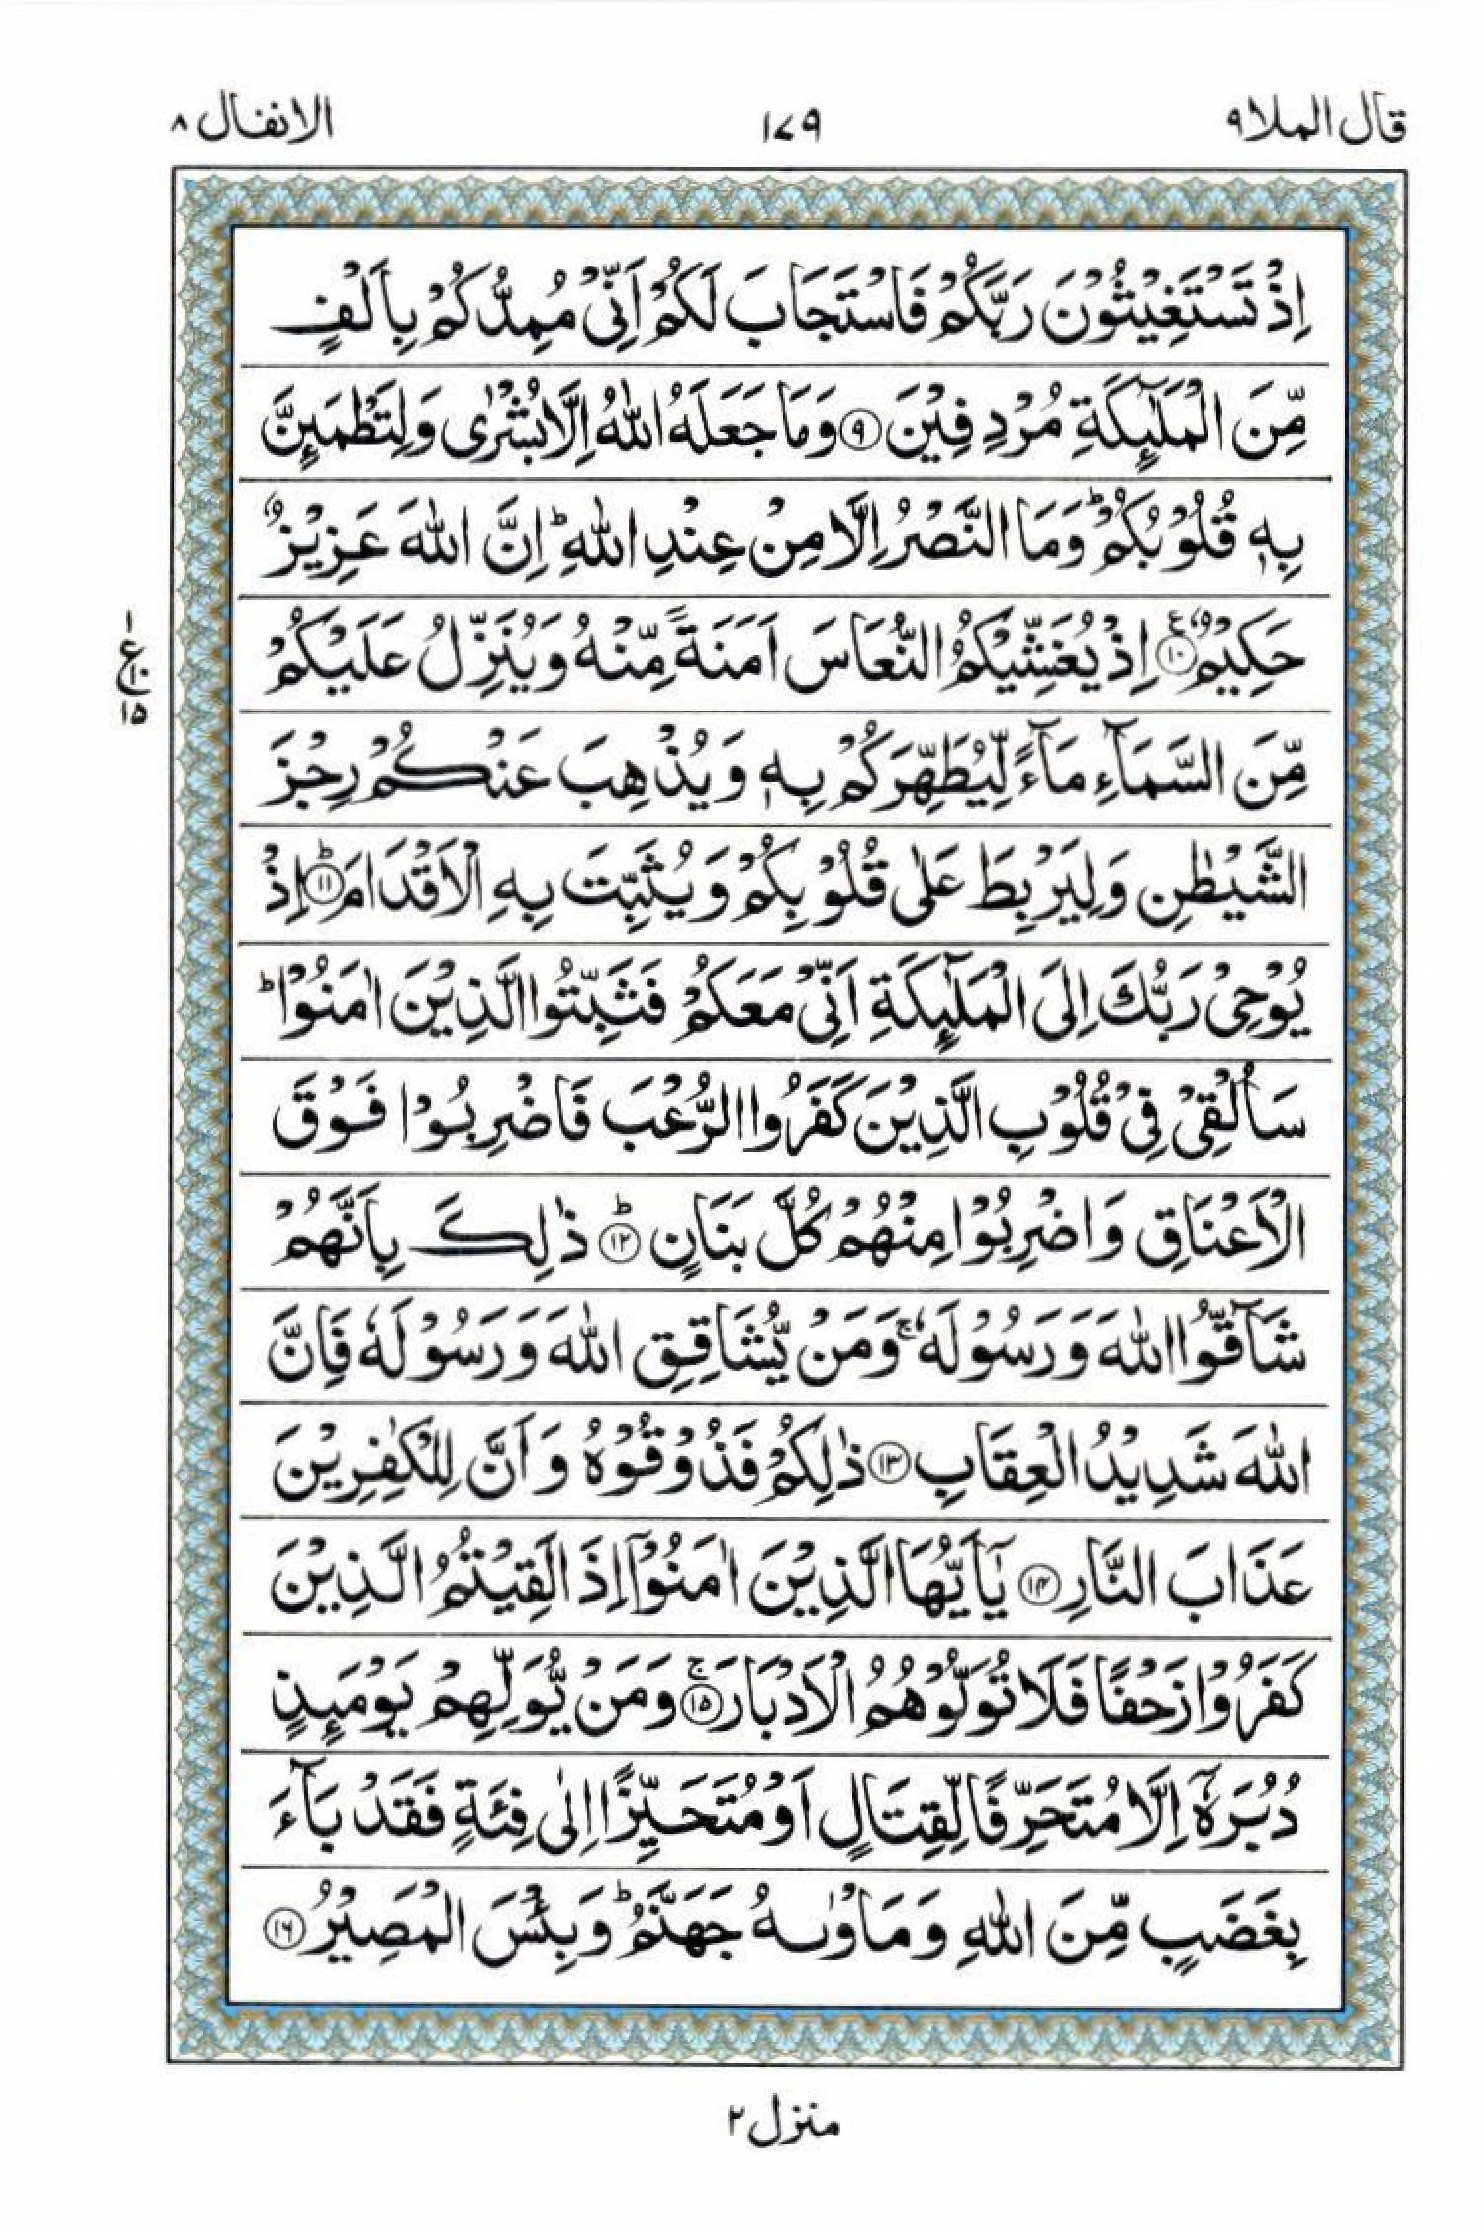 قال الملا ٩
١٧٩
الانفال ٨
اِذْ تَسْتَغِيْثُوْنَ رَبَّكُمْ فَاسْتَجَابَ لَكُمْ اَنِّيْ مُمِدُّكُمْ بِاَلْفٍ
مِّنَ الْمَلٰٓئِكَةِ مُرْدِفِيْنَ ﴿٩﴾ وَمَا جَعَلَهُ اللّٰهُ اِلَّا بُشْرٰى وَلِتَطْمَئِنَّ
بِهٖ قُلُوْبُكُمْ ؕ وَمَا النَّصْرُ اِلَّا مِنْ عِنْدِ اللّٰهِ ؕ اِنَّ اللّٰهَ عَزِيْزٌ
حَكِيْمٌ ﴿١٠﴾ ع اِذْ يُغَشِّيْكُمُ النُّعَاسَ اَمَنَةً مِّنْهُ وَيُنَزِّلُ عَلَيْكُمْ
مِّنَ السَّمَآءِ مَآءً لِّيُطَهِّرَكُمْ بِهٖ وَيُذْهِبَ عَنْكُمْ رِجْزَ
الشَّيْطٰنِ وَلِيَرْبِطَ عَلٰى قُلُوْبِكُمْ وَيُثَبِّتَ بِهِ الْاَقْدَامَ ؕ﴿١١﴾ اِذْ
يُوْحِيْ رَبُّكَ اِلَى الْمَلٰٓئِكَةِ اَنِّيْ مَعَكُمْ فَثَبِّتُوا الَّذِيْنَ اٰمَنُوْا ؕ
سَاُلْقِيْ فِيْ قُلُوْبِ الَّذِيْنَ كَفَرُوا الرُّعْبَ فَاضْرِبُوْا فَوْقَ
الْاَعْنَاقِ وَاضْرِبُوْا مِنْهُمْ كُلَّ بَنَانٍ ؕ﴿١٢﴾ ذٰلِكَ بِاَنَّهُمْ
شَآقُّوا اللّٰهَ وَرَسُوْلَهٗ ۚ وَمَنْ يُّشَاقِقِ اللّٰهَ وَرَسُوْلَهٗ فَاِنَّ
اللّٰهَ شَدِيْدُ الْعِقَابِ ﴿١٣﴾ ذٰلِكُمْ فَذُوْقُوْهُ وَاَنَّ لِلْكٰفِرِيْنَ
عَذَابَ النَّارِ ﴿١٤﴾ يٰٓاَيُّهَا الَّذِيْنَ اٰمَنُوْٓا اِذَا لَقِيْتُمُ الَّذِيْنَ
كَفَرُوْا زَحْفًا فَلَا تُوَلُّوْهُمُ الْاَدْبَارَ ۚ﴿١٥﴾ وَمَنْ يُّوَلِّهِمْ يَوْمَئِذٍ
دُبُرَهٗٓ اِلَّا مُتَحَرِّفًا لِّقِتَالٍ اَوْ مُتَحَيِّزًا اِلٰى فِئَةٍ فَقَدْ بَآءَ
بِغَضَبٍ مِّنَ اللّٰهِ وَمَاْوٰىهُ جَهَنَّمُ ؕ وَبِئْسَ الْمَصِيْرُ ﴿١٦﴾
١
ع
١٠
١٥
منزل ٢